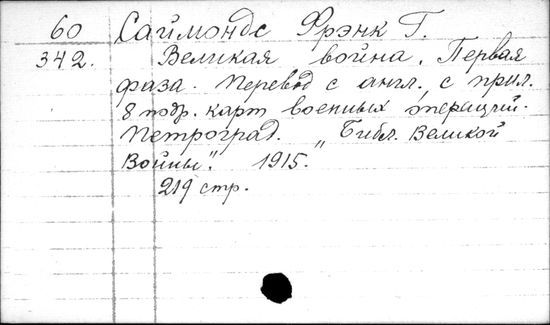 60 Саймондс Фрэнк Г.
342. Великая война. Первая
фаза. Перевод с англ. с прил.
8 подр. карт военных операций.
Петроград. „Библ. Великой
Войны". 1915.
219 стр.